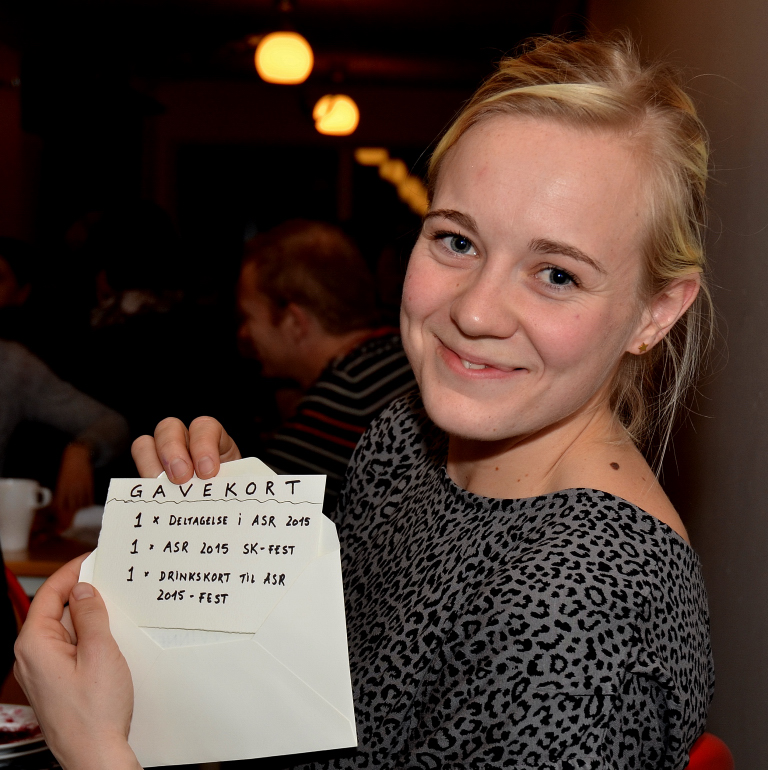 GAVEKORT
1 × DELTAGELSE i ASR 2015
1 × ASR 2015 SK-FEST
1 × DRINKSKORT TIL ASR
2015-FEST